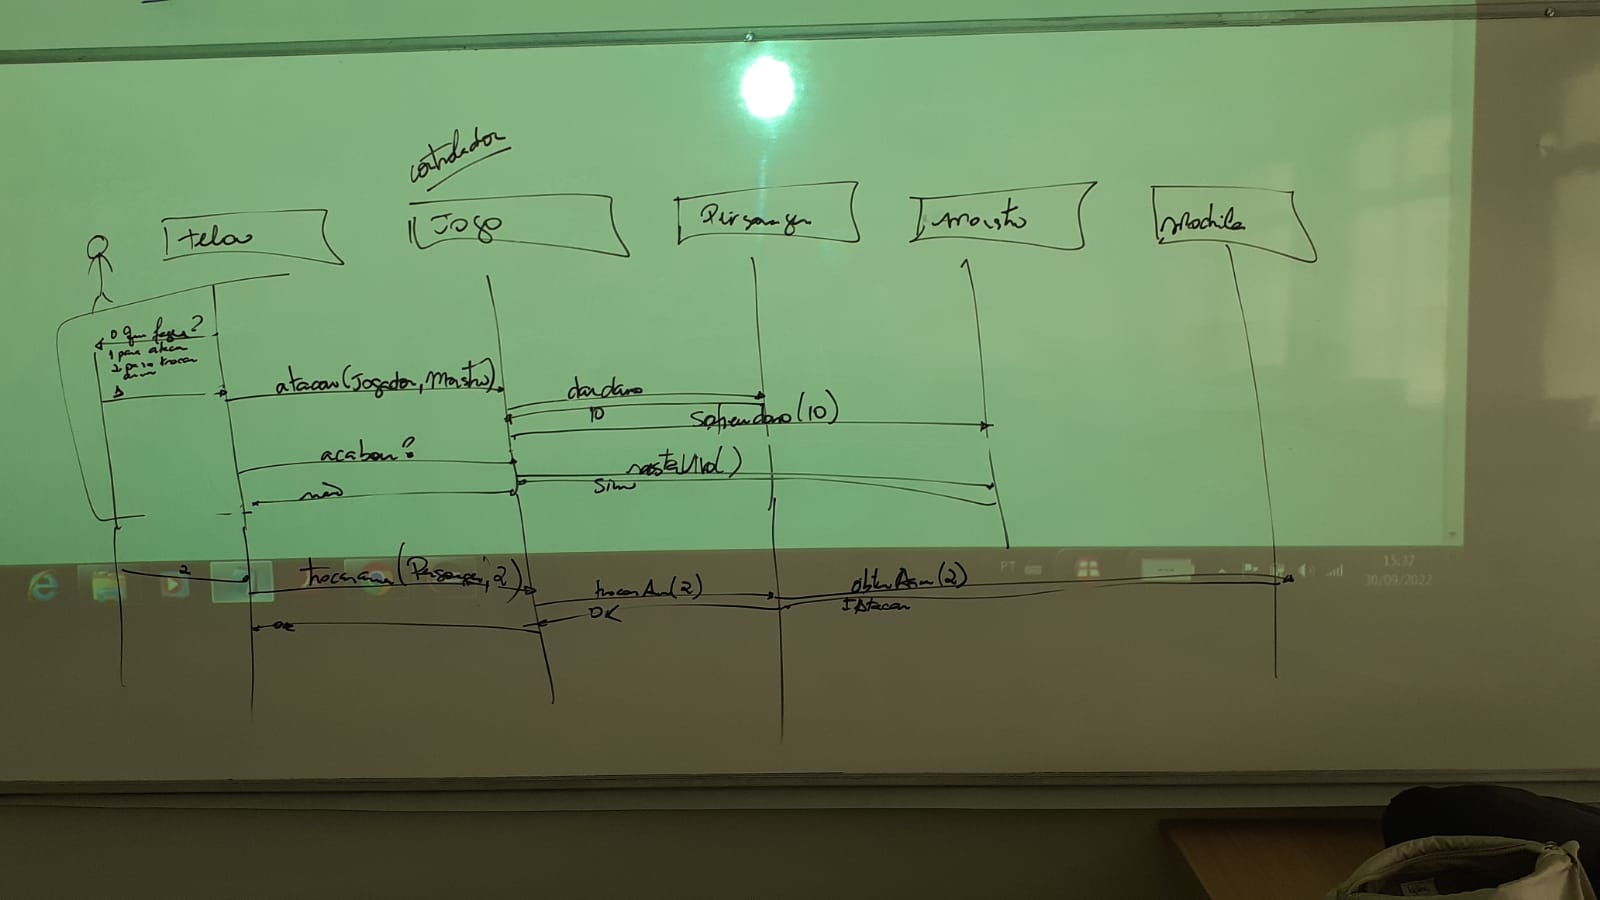 controlador
tela
Jogo
Personagem
Monstro
Mochila
O que fazer?
1 para atacar
2 para trocar
arma
1
atacar(Jogador, Monstro)
dardano
10
sofrerdano(10)
acabou?
não
Sim
2
trocararma(Personagem, 2)
trocarArma(2)
obterArma(2)
IAtacar
OK
OK
PT
15:37
30/09/2022